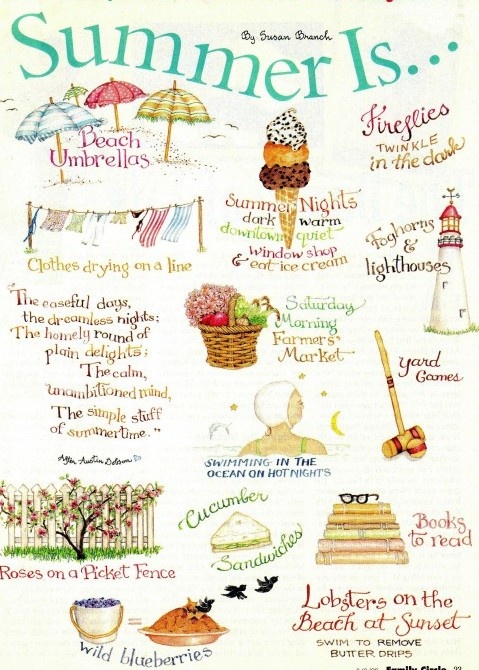 Summer Is...
By Susan Branch
Beach
Umbrellas
Fireflies
TWINKLE
in the dark
Summer Nights
dark warm
downtown quiet
window shop
& eat ice cream
Foghorns
&
lighthouses
Clothes drying on a line
"The easeful days,
the dreamless nights;
The homely round of
plain delights;
The calm,
unambitioned mind,
The simple stuff
of summertime."
After Austin Dobson
Saturday
Morning
Farmers'
Market
yard
Games
SWIMMING IN THE
OCEAN ON HOT NIGHTS
Cucumber
Sandwiches
Books
to read
Roses on a Picket Fence
wild blueberries
Lobsters on the
Beach at Sunset
SWIM TO REMOVE
BUTTER DRIPS
Family Circle